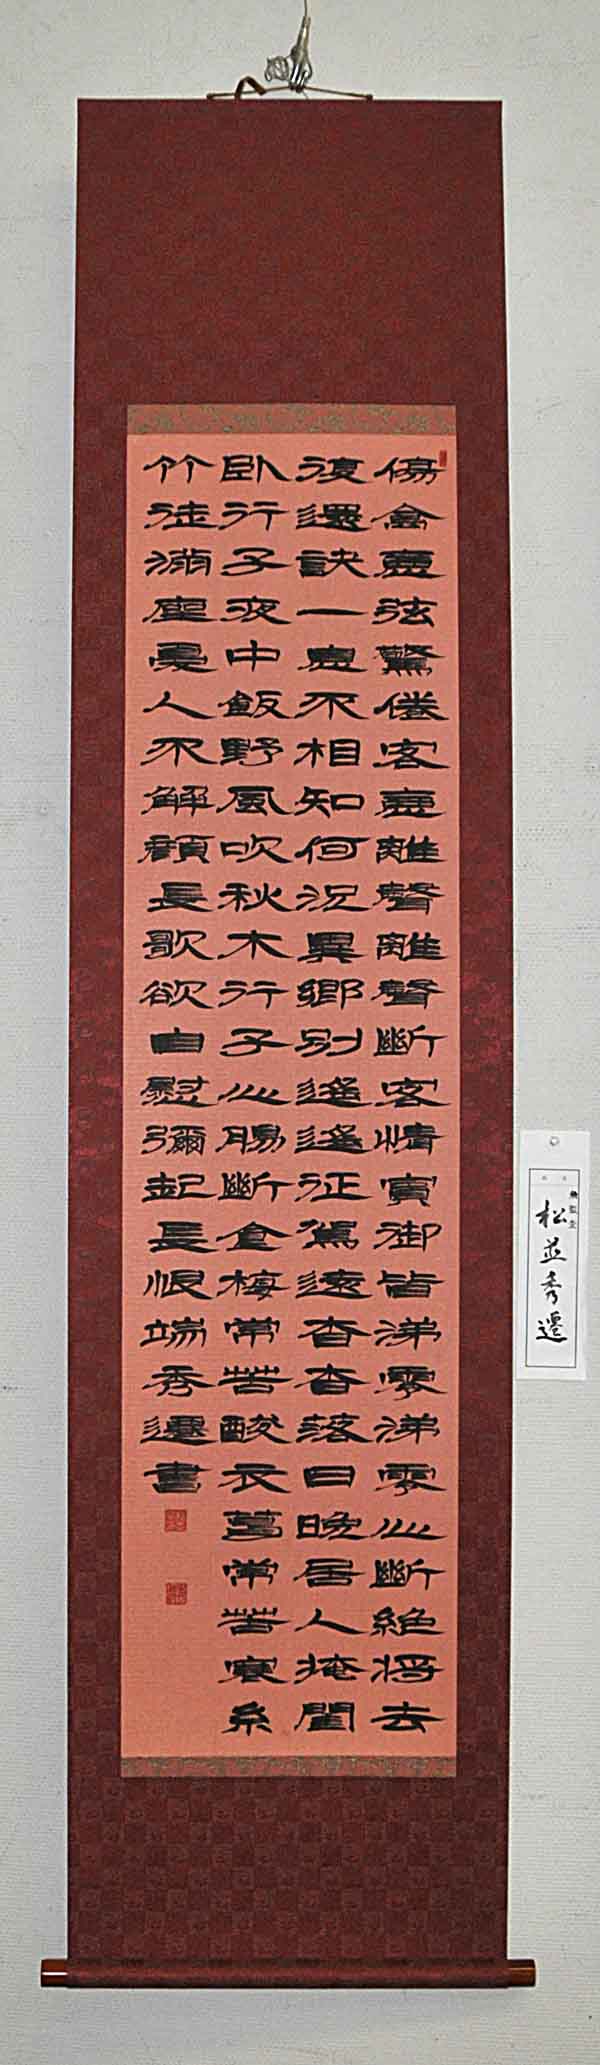 傷禽惡弦驚倦客惡離聲離聲斷客情賓御皆涕零涕零心斷絶將去
復還訣一息不相知何況異鄉別遙遙征駕遠杳杳落日晚居人掩閨
臥行子夜中飯野風吹秋木行子心腸斷食梅常苦酸衣葛常苦寒糸
竹徒滿座憂人不解顏長歌欲自慰彌起長恨端秀遷書
松並秀遷